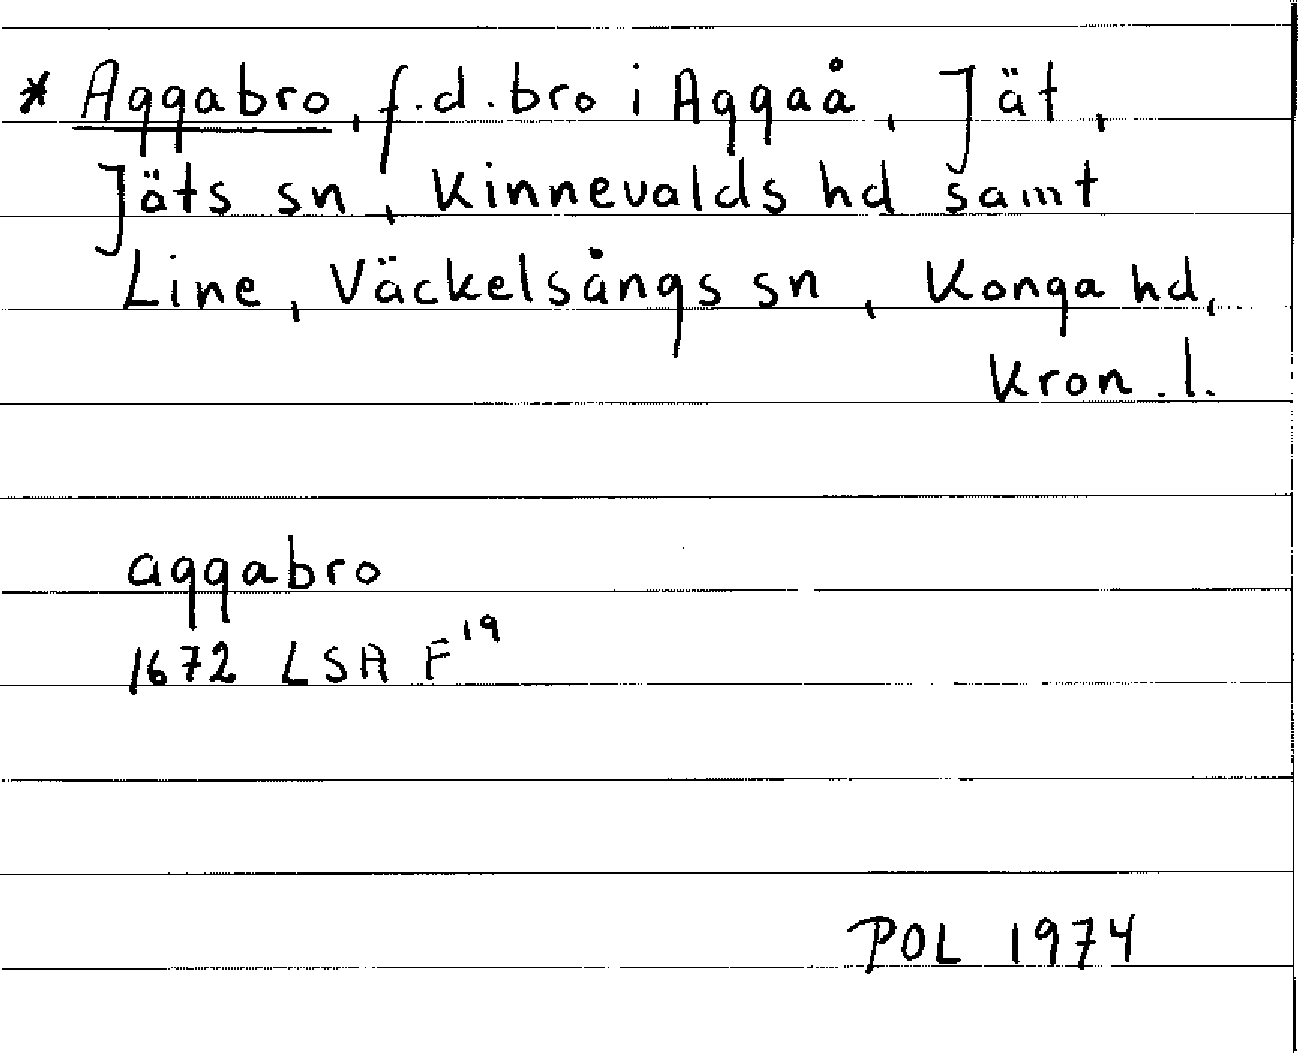 * Aggabro, f.d. bro i Aggaå, Jät,
Jäts sn, Kinnevalds hd samt
Line, Väckelsångs sn, Konga hd,
Kron. l.
aggabro
1672 LSA F¹⁹
POL 1974